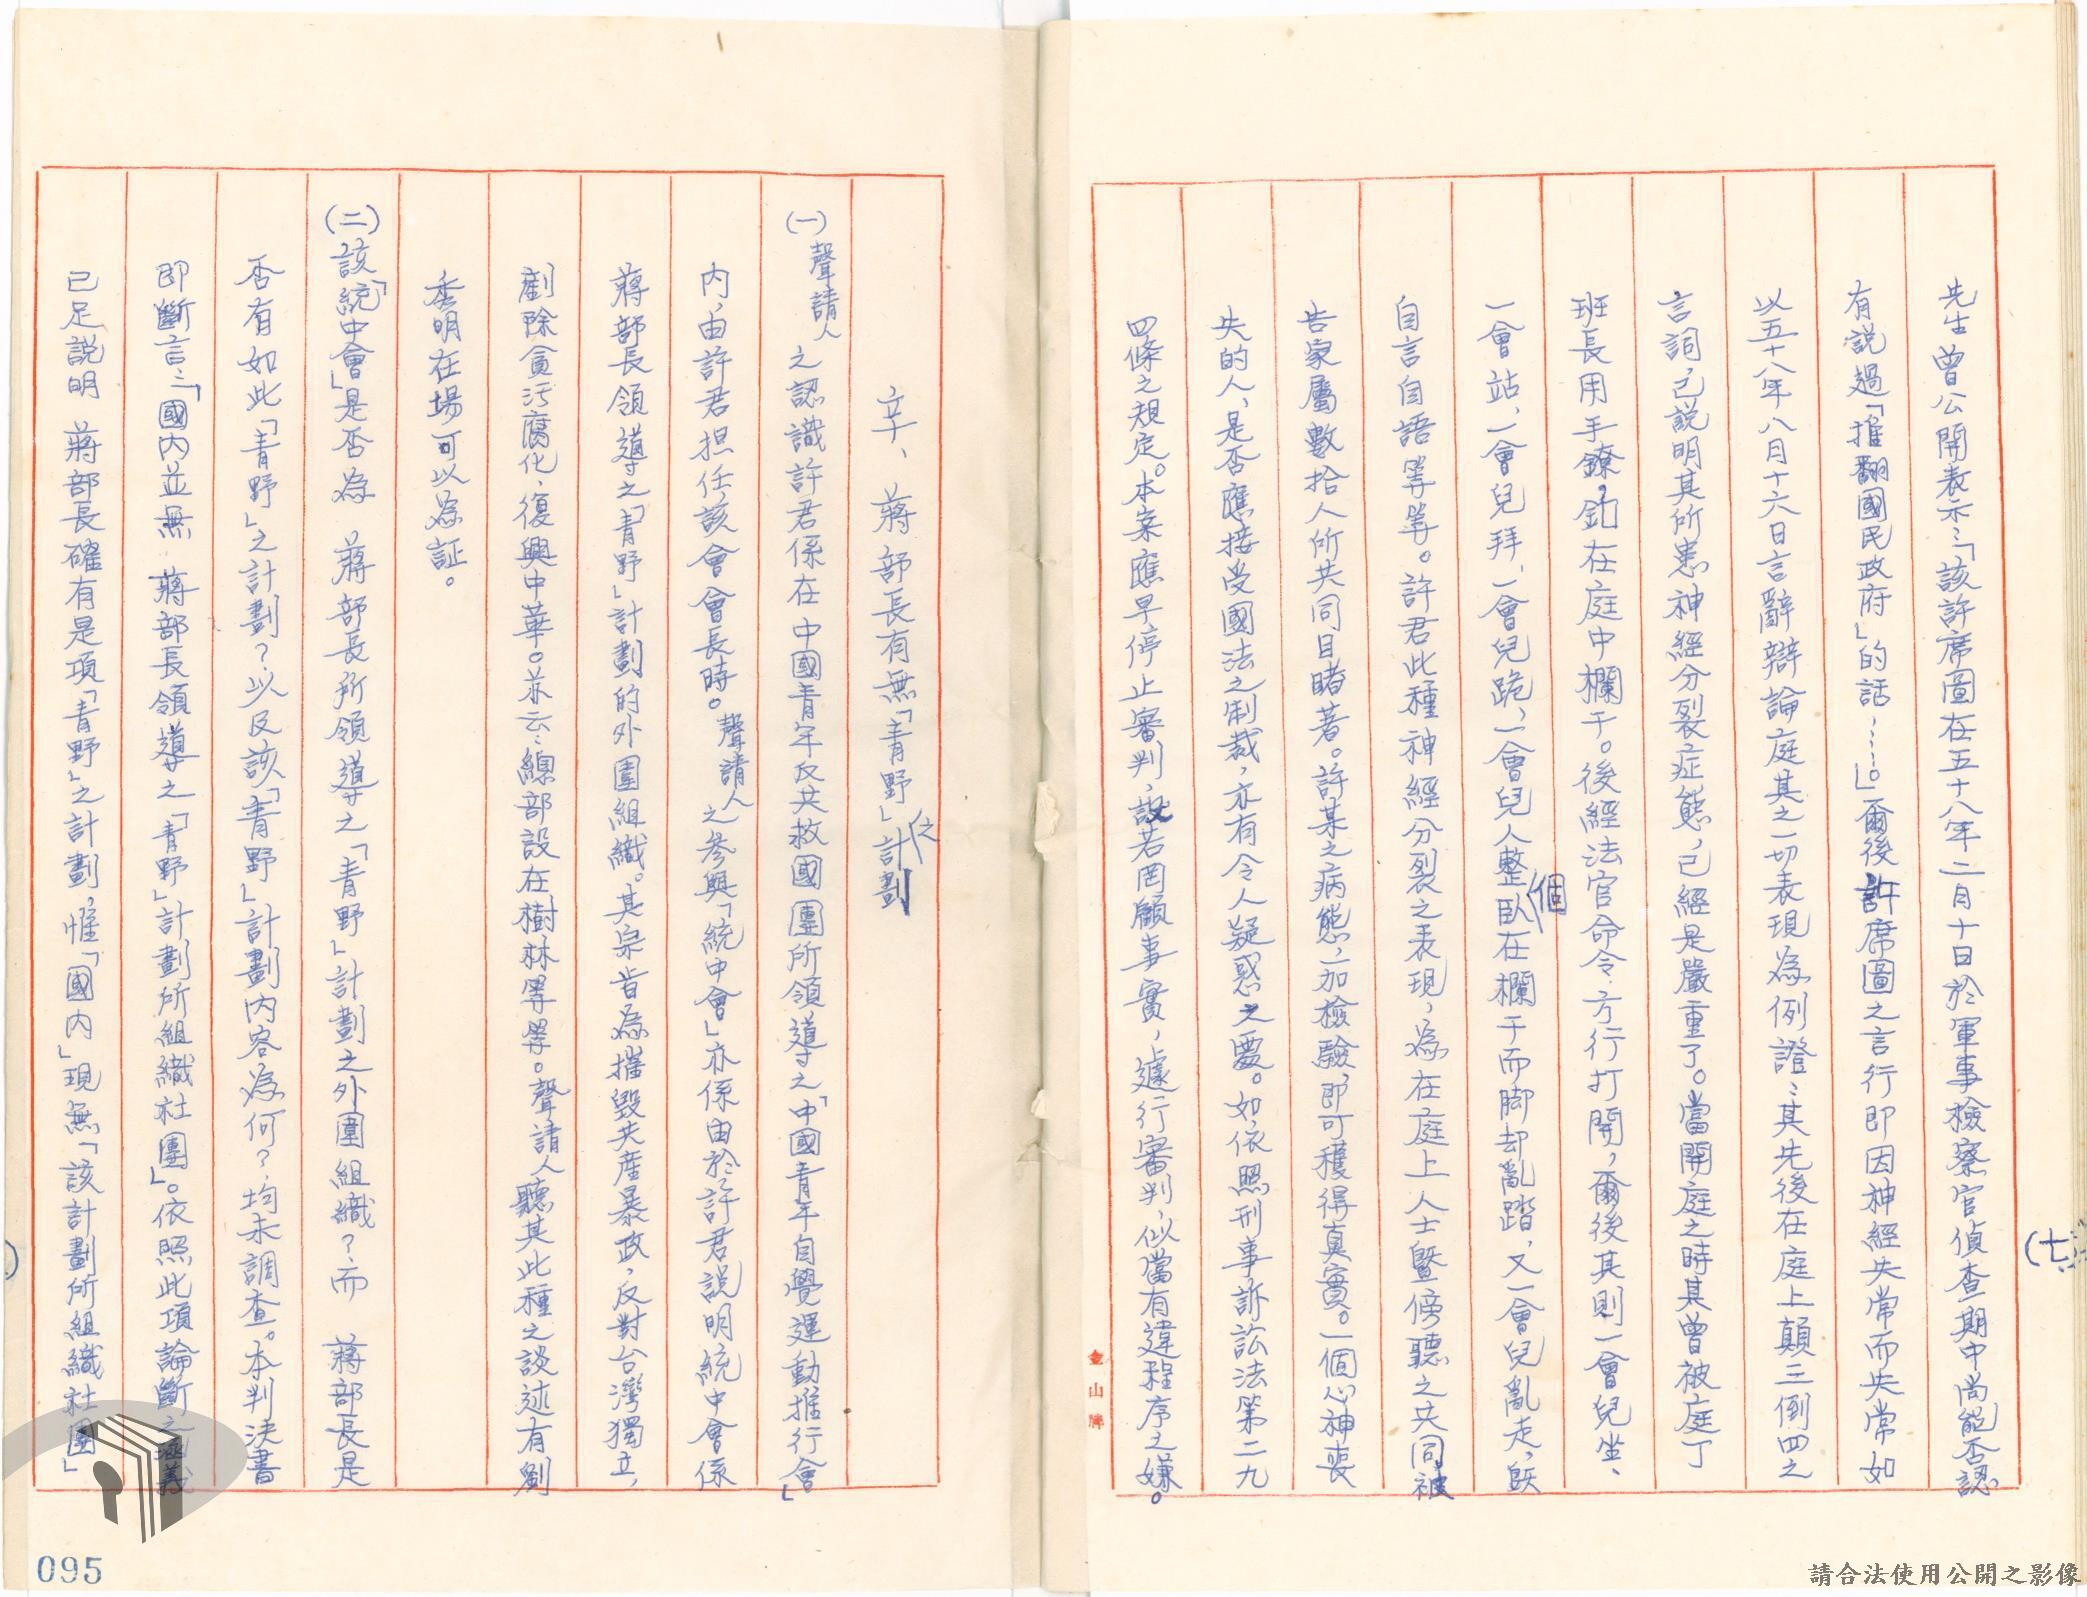 先生曾公開表示：「該許席圖在五十八年二月十日於軍事檢察官偵查期中尚能否認
有說過「推翻國民政府」的話……」。爾後許席圖之言行即因神經失常而失常如
以五十八年八月十六日言辭辯論庭其之一切表現為例證：其先後在庭上顛三倒四之
言詞，已說明其所患神經分裂症態，已經是嚴重了。當開庭之時其曾被庭丁
班長用手鐐，釦在庭中欄干。後經法官命令方行打開，爾後其則一會兒坐、
一會站，一會兒拜，一會兒跪，一會兒人整個臥在欄干而脚却亂踏，又一會兒亂走，既
自言自語等等。許君此種神經分裂之表現，為在庭上人士暨傍聽之共同被
告家屬數拾人所共同目睹著。許某之病態，一加檢驗，即可穫得真實。一個心神喪
失的人，是否應接受國法之制裁，亦有令人疑惑之要。如依照刑事訴訟法第二九
四條之規定。本案應早停止審判，設若罔顧事實，遽行審判，似當有違程序之嫌。
(七)
金山牌
辛、蔣部長有無「青野」之計劃
(一)聲請人之認識許君係在中國青年反共救國團所領導之「中國青年自覺運動推行會」
內，由許君担任該會會長時。聲請人之參與「統中會」亦係由於許君說明統中會係
蔣部長領導之「青野」計劃的外圍組織。其宗旨為摧毀共產暴政，反對台灣獨立，
剷除貪污腐化，復興中華。並云：總部設在樹林等等。聲請人聽其此種之談述有劉
秀明在場可以為証。
(二)該「統中會」是否為 蔣部長所領導之「青野」計劃之外圍組織？而 蔣部長是
否有如此「青野」之計劃？以及該「青野」計劃內容為何？均未調查。本判決書
即斷言：「國內並無 蔣部長領導之「青野」計劃所組織社團」。依照此項論斷之涵義
已足說明 蔣部長確有是項「青野」之計劃，惟「國內」現無「該計劃所組織社團」
095
請合法使用公開之影像